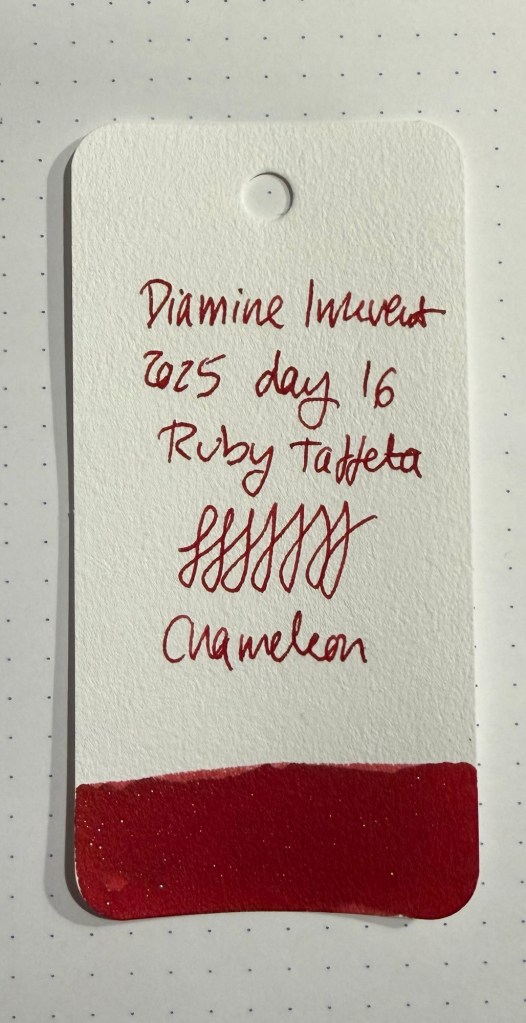 Diamine Inkvent
2025 day 16
Ruby Taffeta
Chameleon